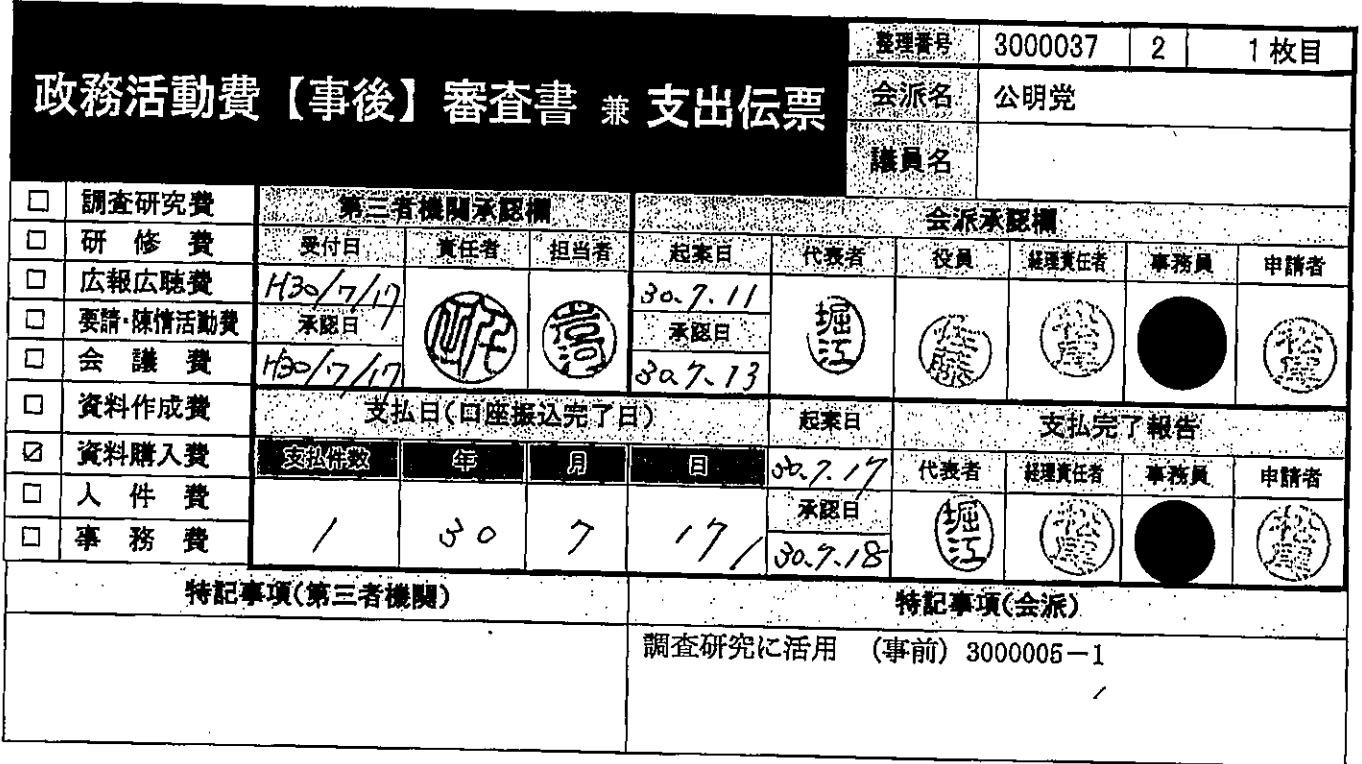 政務活動費【事後】審査書 兼 支出伝票
整理番号 3000037 2 1枚目
会派名 公明党
議員名
□ 調査研究費
□ 研修費
□ 広報広聴費
□ 要請・陳情活動費
□ 会議費
□ 資料作成費
☑ 資料購入費
□ 人件費
□ 事務費
第三者機関承認欄
受付日 責任者 担当者
H30/7/17
承認日
H30/7/17
会派承認欄
起案日 代表者 役員 経理責任者 事務員 申請者
30.7.11 堀江 佐藤 松尾 松尾
承認日
30.7.13
支払日(口座振込完了日)
支払件数 年 月 日
1 30 7 17
起案日
30.7.17
承認日
30.7.18
支払完了報告
代表者 経理責任者 事務員 申請者
堀江 松尾 松尾
特記事項(第三者機関)
特記事項(会派)
調査研究に活用 (事前) 3000005-1